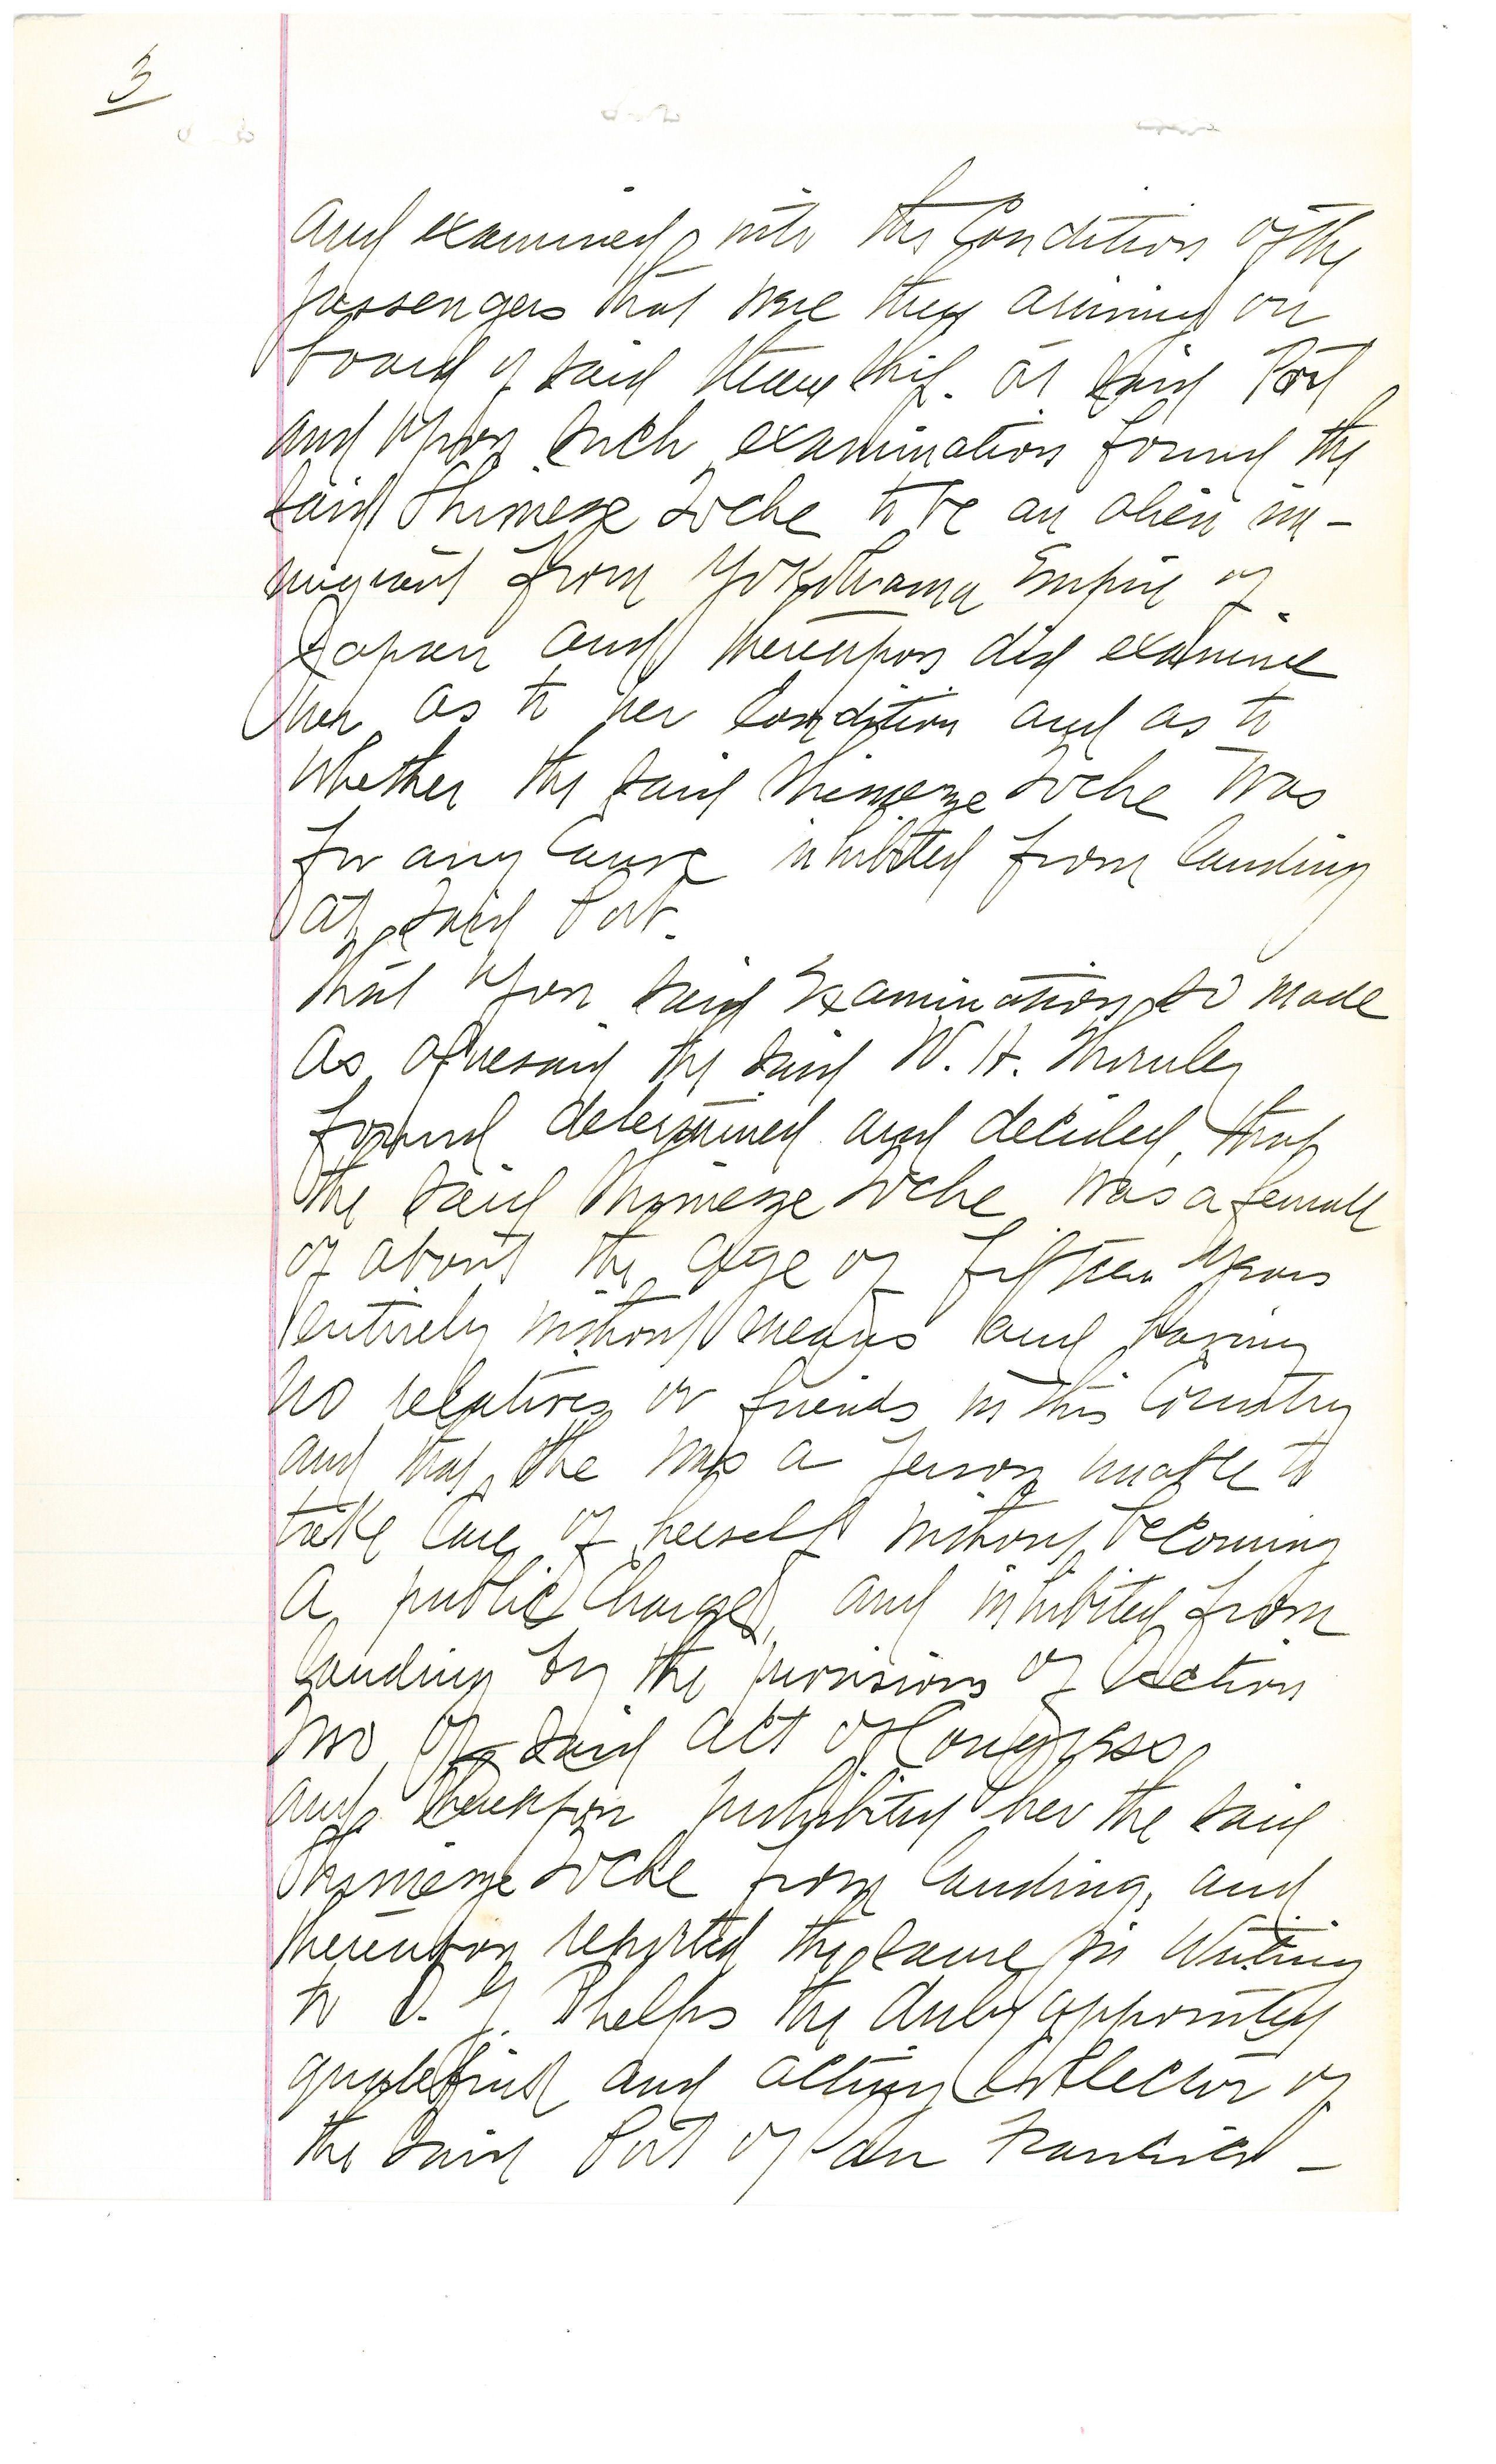 3
and examined into the Condition of the
passengers that were then arriving on
board of said steam ship. at said Port
and upon such examination found the
said Shimeze Toche to be an alien im-
migrant from Yokohama Empire of
Japan and thereupon did examine
her as to her Condition and as to
whether the said Shimeze Toche was
for any Cause inhibited from landing
at said Port.
That upon said Examination so made
as aforesaid the said W. H. Thornley
found determined and decided, that
the said Shimeze Toche was a female
of about the age of fifteen years
entirely without means and having
no relatives or friends in this Country
and that she was a person unable to
take Care of herself without becoming
a public Charge, and inhibited from
landing by the provisions of Section
two of said Act of Congress,
and thereupon prohibited her the said
Shimeze Toche from landing, and
thereupon reported the same in Writing
to T. G. Phelps the duly appointed
qualified and acting Collector of
the said Port of San Francisco -